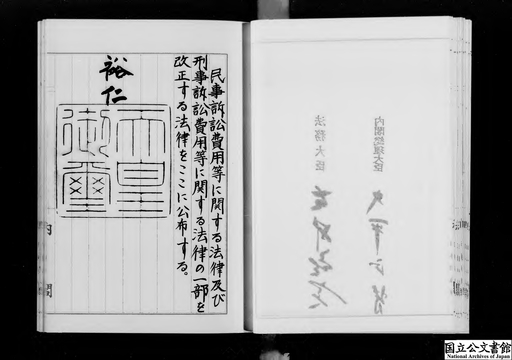 内閣総理大臣
法務大臣
民事訴訟費用等に関する法律及び
刑事訴訟費用等に関する法律の一部を
改正する法律をここに公布する。
裕仁
天皇
御璽
内
閣
国立公文書館
National Archives of Japan